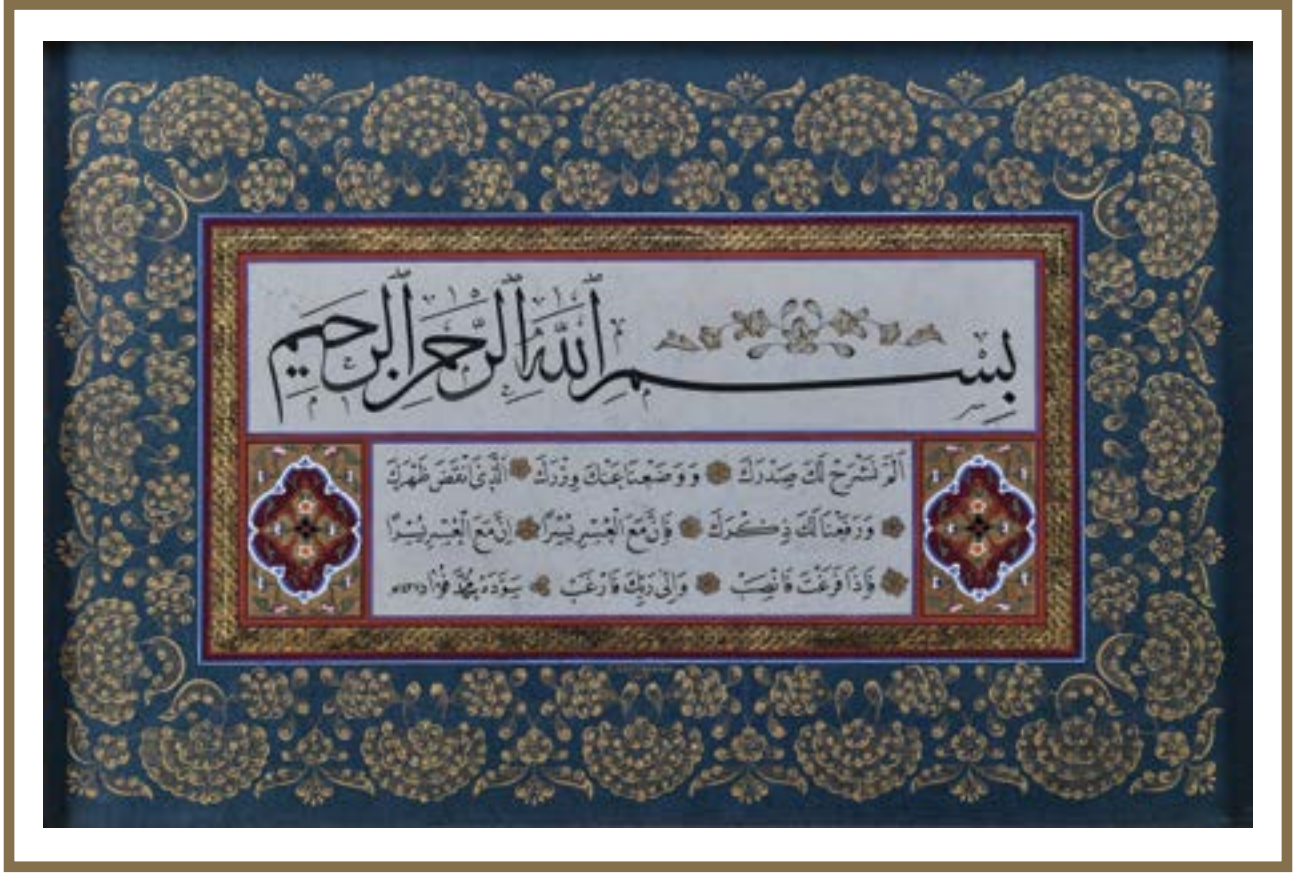 بِسْمِ اللَّهِ الرَّحْمٰنِ الرَّحِيمِ
اَلَمْ نَشْرَحْ لَكَ صَدْرَكَ وَوَضَعْنَا عَنْكَ وِزْرَكَ اَلَّذِى اَنْقَضَ ظَهْرَكَ
وَرَفَعْنَا لَكَ ذِكْرَكَ فَاِنَّ مَعَ الْعُسْرِ يُسْرًا اِنَّ مَعَ الْعُسْرِ يُسْرًا
فَاِذَا فَرَغْتَ فَانْصَبْ وَاِلٰى رَبِّكَ فَارْغَبْ سَوَّدَهُ مُحَمَّد